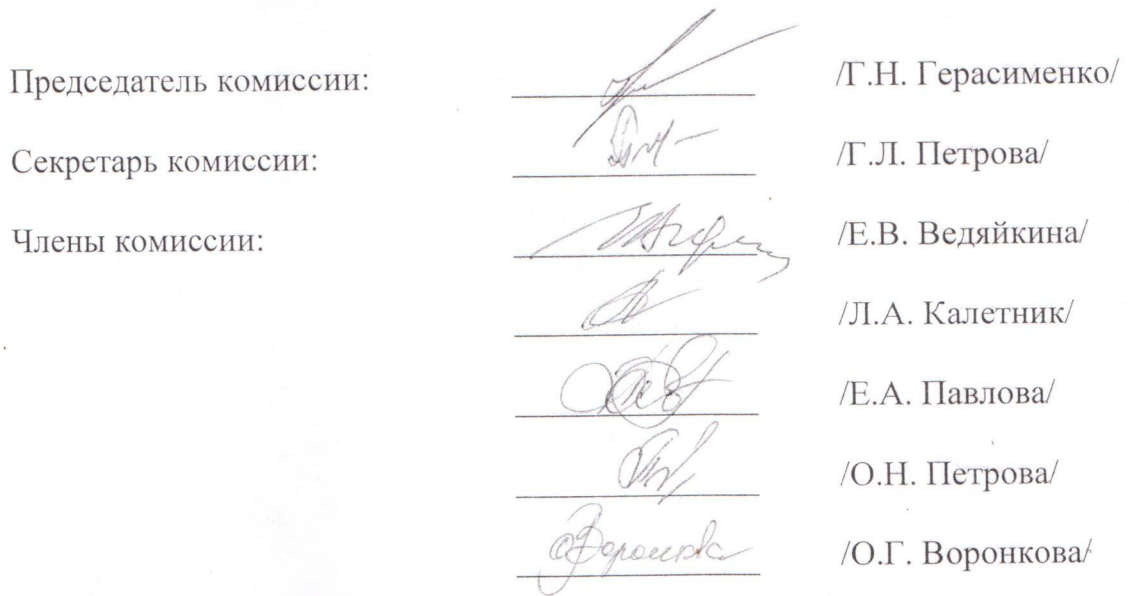 Председатель комиссии: /Г.Н. Герасименко/
Секретарь комиссии: /Г.Л. Петрова/
Члены комиссии: /Е.В. Ведяйкина/
/Л.А. Калетник/
/Е.А. Павлова/
/О.Н. Петрова/
/О.Г. Воронкова/